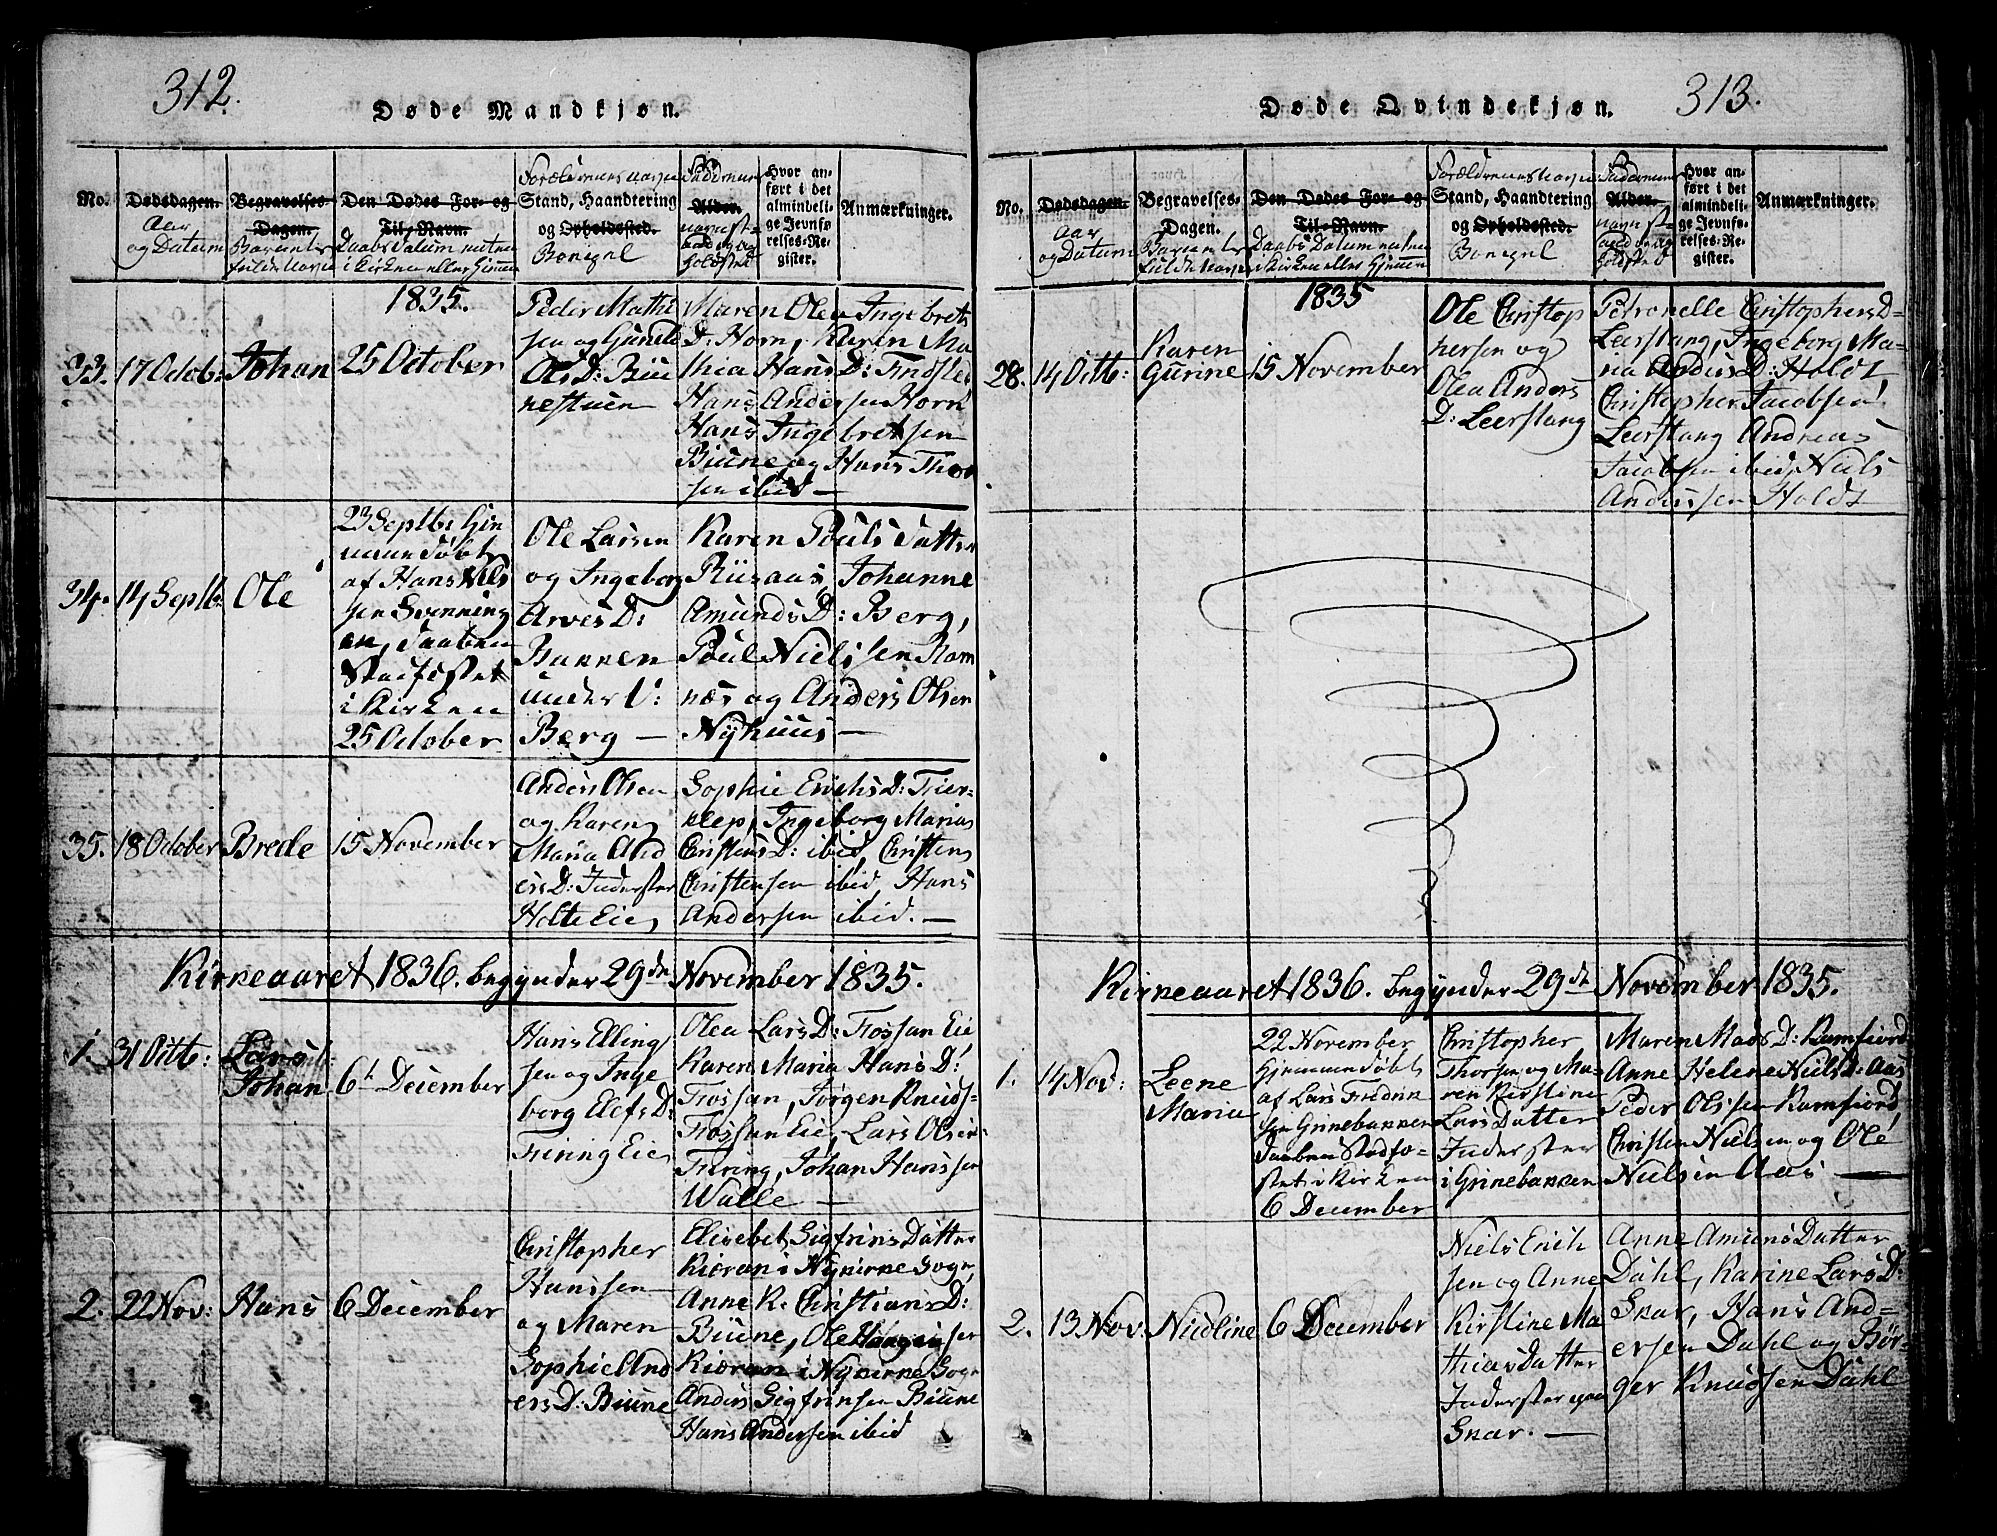 312.
Døde Mandkjøn.
No.
Dødsdagen.
Aar
og Datum
Begravelses-
Dagen.
Barnets
fulde Navn
Den Dødes For- og
Til-Navn.
Daabs Datum enten
i Kirken eller Hjemme
Forældrenes Navne
Stand, Haandtering
og Opholdssted.
Boepæl
Faddernes
Alder.
Navne St-
and og Op-
holdsted
Hvor an-
ført i det
almindeli-
ge Jevnfø-
relses-Re-
gister.
Anmærkninger.
1835.
33. 17 Octob:
Johan
25 October
Peder Mathi
sen og Gunild
Ols D: Biu
nestuen
Maren Olea Ingebrets
D: Horn, Karen Ma
thia Hans D:
Hans Andersen Horn
Hans Ingebretsen
Biune og Hans Thor
sen ibid —
34. 14 Septb:
Ole
23 Septb: Hie
mme døbt
af Hans Nils
sen Svenning
en, Daaben
Stadfæstet
i Kirken
25 October
Ole Larsen
og Ingeborg
Arves D:
Bakken
under V:
Berg —
Karen Pouls Datter
Riisaas, Johanne
Amunds D: Berg,
Poul Nielssen Ram
næs og Anders Olsen
Nyhuus —
35. 18 October
Brede
15 November
Anders Olsen
og Karen
Maria And
ers D: Inderster
Holte Eie
Sophie Erichs D: Fier-
Ingeborg Marias
Christens D: ibid, Christens
Christensen ibid, Hans
Andersen ibid. —
Kirkeaaret 1836. begynder 29de November 1835.
1. 31 Octb:
Lars
Johan
6t December
Hans Elling
sen og Inge
borg Elefs D:
Firing Eie
Olea Lars D: Fossan Eie
Karen Maria Hans D:
Fossan, Jørgen Knuds-
Fossan Eie, Lars Olsen
Firing, Johan Hanssen
Walle —
2. 22 Nov:
Hans
6 December
Christopher
Hanssen
og Maren
Sophie And
ers D: Biune
Elisebet Sigfrins Datter
Kieran i Nykirke Sogn,
Anne K. Christians D:
Biune, Ole Hansen
Kieran i Nykirke Sogn
Anders Sigfrinsen Biune
Hans Andersen ibid
313.
Døde Qvindekjøn.
No.
Dødsdagen.
Aar
og Datum
Begravelses-
Dagen.
Barnets
fulde Navn
Den Dødes For- og
Til-Navn.
Daabs Datum enten
i Kirken eller Hjemme
Forældrenes Navne
Stand, Haandtering
og Opholdssted.
Boepæl
Faddernes
Alder.
Navne St-
and og Op-
holdsted
Hvor an-
ført i det
almindeli-
ge Jevnfø-
relses-Re-
gister.
Anmærkninger.
1835
28. 14 Octb:
Karen
Gurine
15 November
Ole Christop
hersen og
Olea Anders
D: Leerstang
Petronelle Christophers D-
Leerstang, Ingeborg Ma-
ria Anders D: Holdt
Christopher Jacobsen
Leerstang Andreas
Jacobsen ibid, Niels
Anderssen Holdt
Kirkeaaret 1836. begynder 29de November 1835.
1. 14 Nov:
Leene
Maria
22 November
Hjemmedøbt
af Lars Fredrik
sen Grinebakken
Daaben Stadfæ-
stet i Kirken
6 December
Christopher
Thorsen og Ma-
ren Kirstine
Lars Datter
Inderster
i Grinebakken
Maren Mads D: Kamfiord
Anne Helene Niels D: Aas
Peder Olssen Kamfiord,
Christen Nielsen og Ole
Nielsen Aas —
2. 13 Nov.
Nicoline
6 December
Niels Erich
sen og Anne
Kirstine Ma
thias Datter
Inderster paa
Skar. —
Anne Amunds Datter
Dahl, Karine Lars D:
Skar, Hans And-
ersen Dahl og Bør-
ger Knudsen Dahl